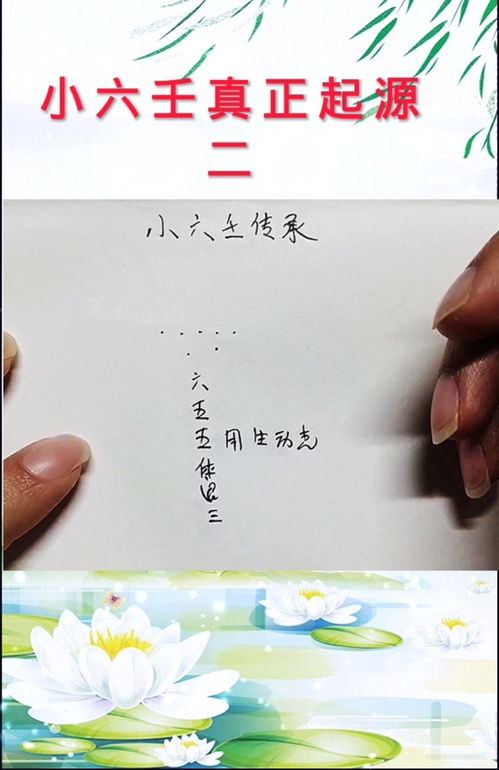 小六壬真正起源
二
小六壬传承
六
五
五用生动克
体
三